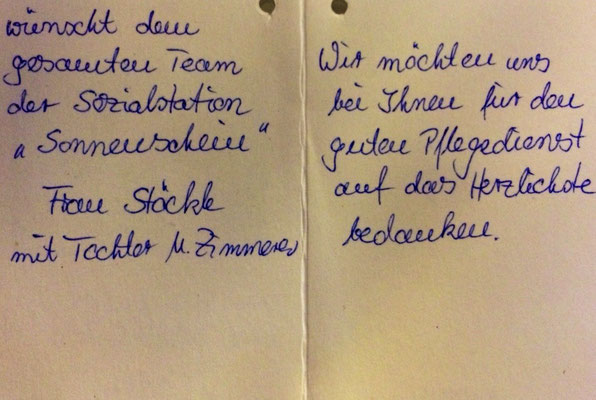 wünscht dem
gesamten Team
der Sozialstation
„Sonnenschein“
Frau Stöckle
mit Tochter M. Zimmerer
Wir möchten uns
bei Ihnen für den
guten Pflegedienst
auf das Herzlichste
bedanken.